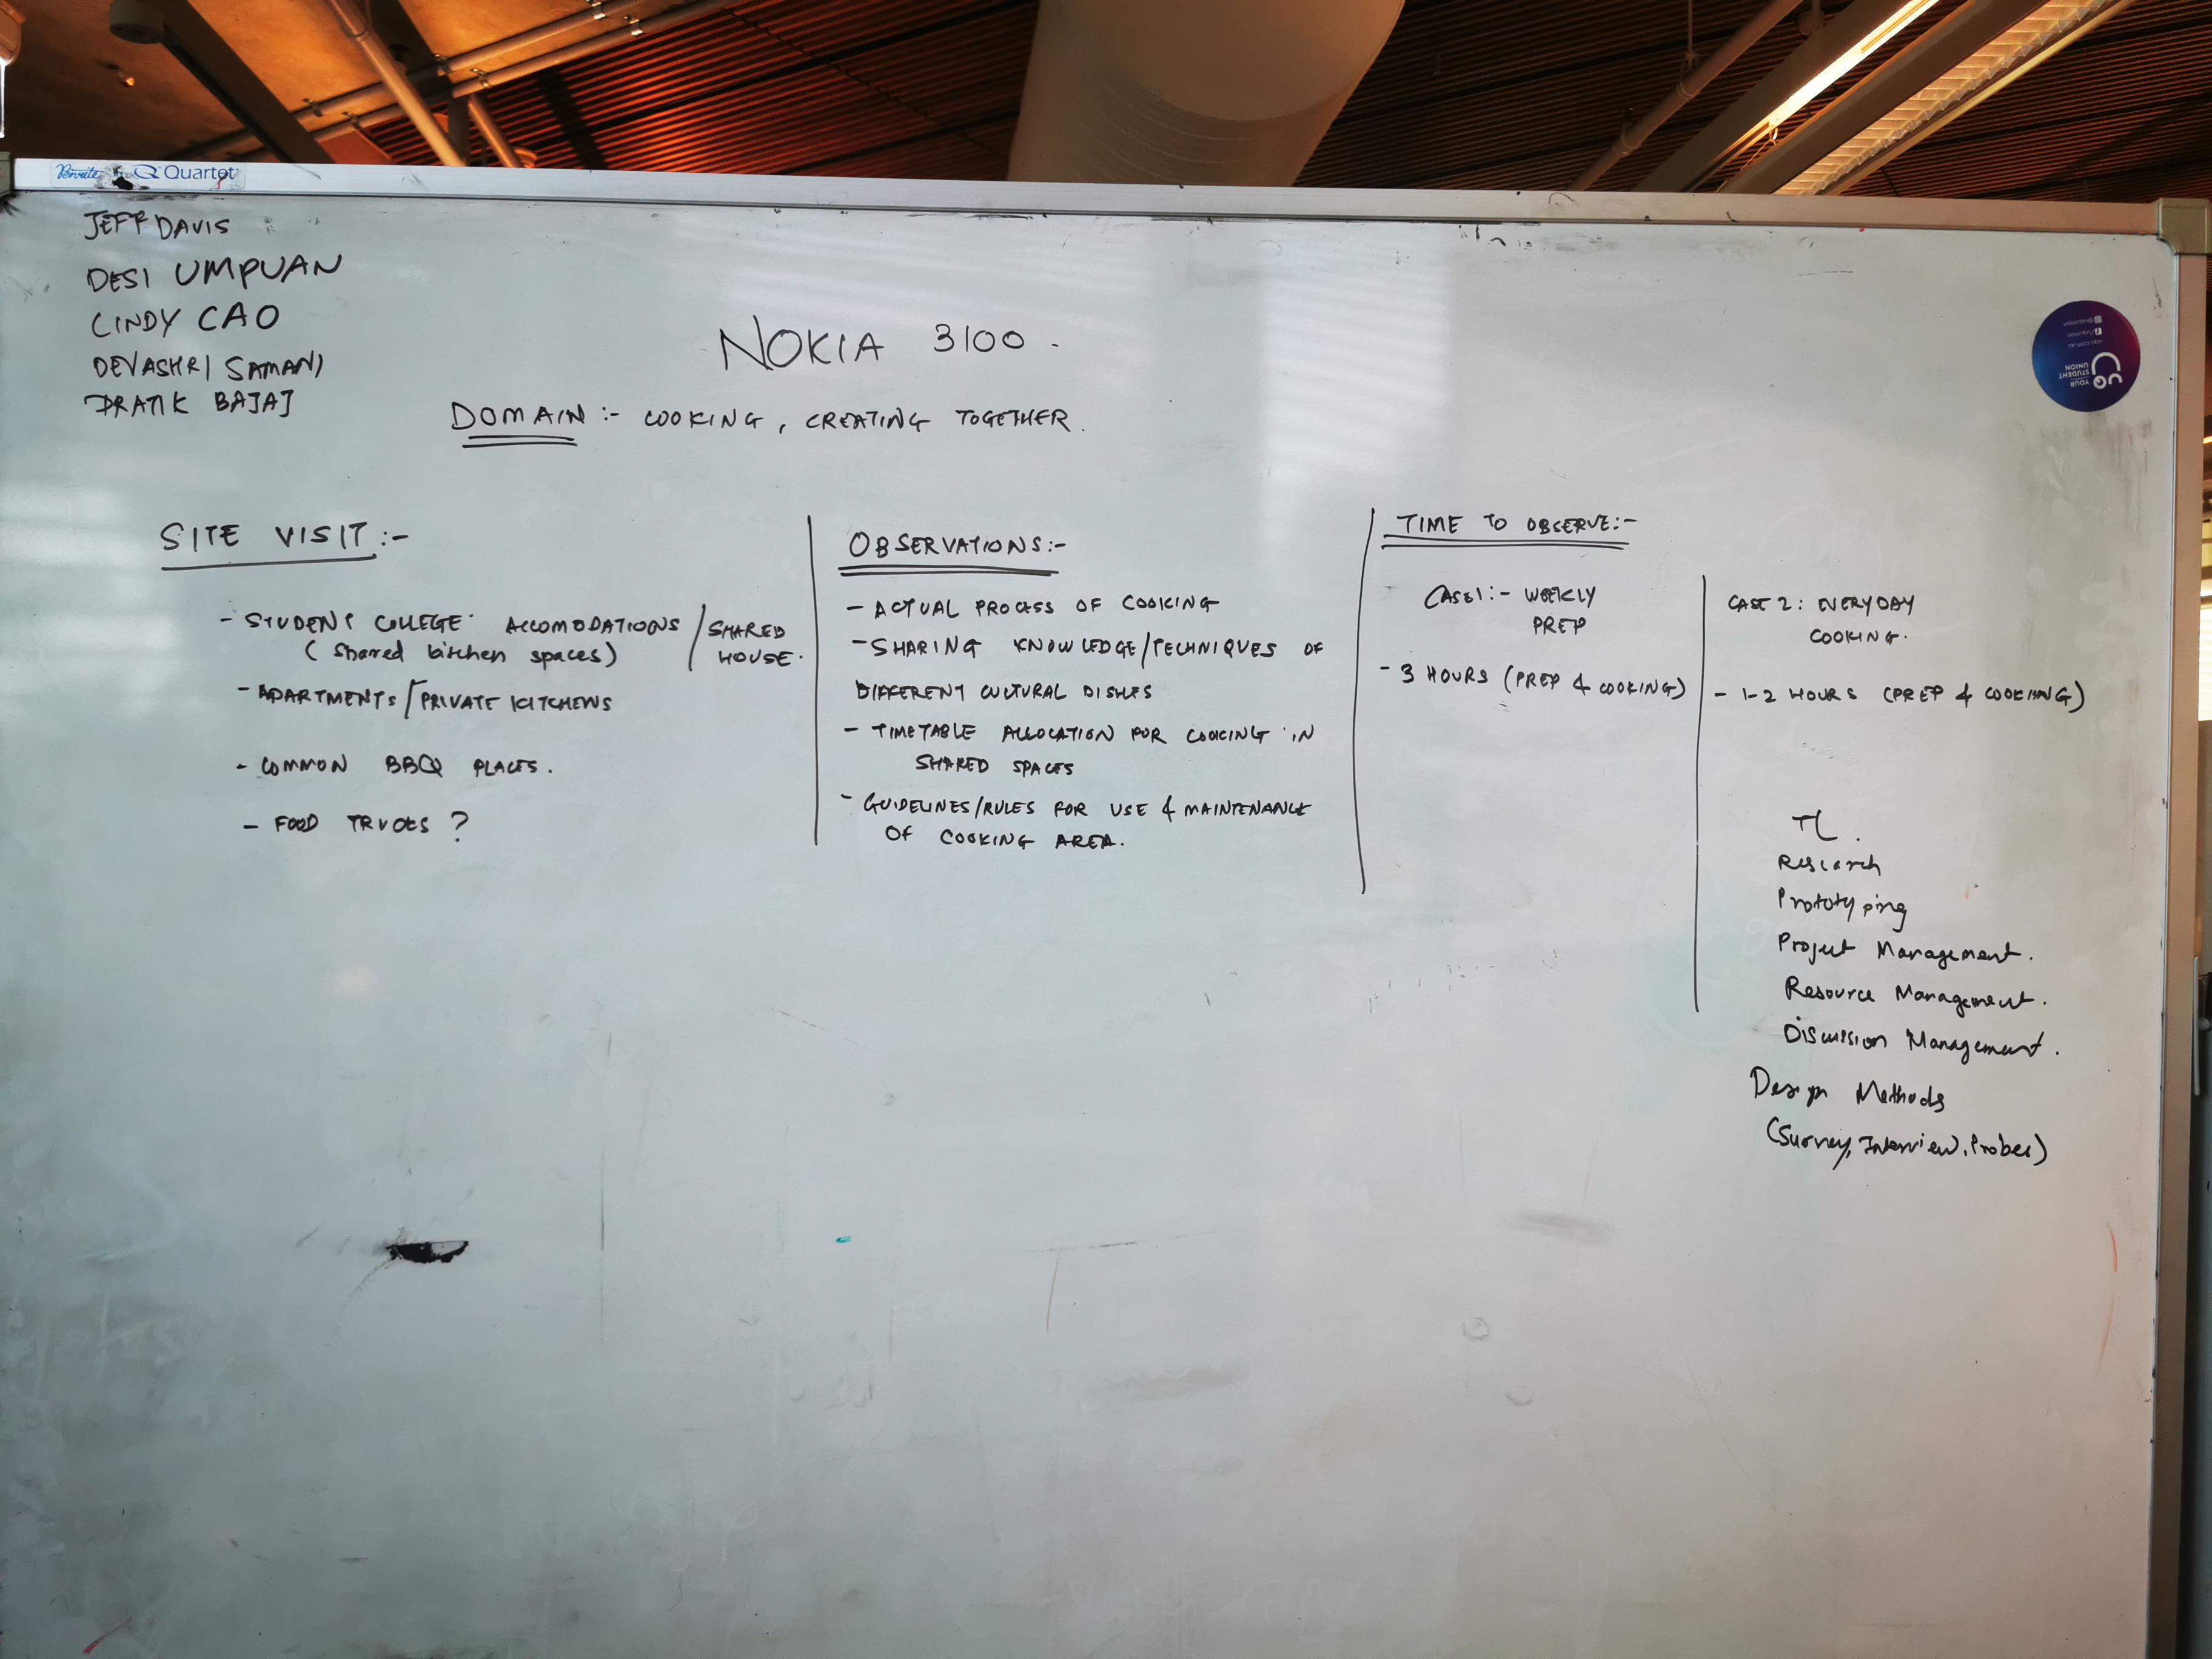 Quartet
JEFF DAVIS
DESI UMPUAN
CINDY CAO
DEVASHRI SAMANI
PRATIK BAJAJ
NOKIA 3100.
DOMAIN :- COOKING, CREATING TOGETHER.
SITE VISIT :-
- STUDENT COLLEGE ACCOMODATIONS / SHARED HOUSE.
(Shared kitchen spaces)
- APARTMENTS / PRIVATE KITCHENS
- COMMON BBQ PLACES.
- FOOD TRUCKS ?
OBSERVATIONS:-
- ACTUAL PROCESS OF COOKING
- SHARING KNOWLEDGE/TECHNIQUES OF
DIFFERENT CULTURAL DISHES
- TIMETABLE ALLOCATION FOR COOKING IN
SHARED SPACES
- GUIDELINES/RULES FOR USE & MAINTENANCE
OF COOKING AREA.
TIME TO OBSERVE:-
CASE 1:- WEEKLY
PREP
- 3 HOURS (PREP & COOKING)
CASE 2: EVERYDAY
COOKING.
- 1-2 HOURS (PREP & COOKING)
TL.
Research
Prototyping
Project Management.
Resource Management.
Discussion Management.
Design Methods
(Survey, Interview, Probes)
UQ
YOUR
STUDENT
UNION